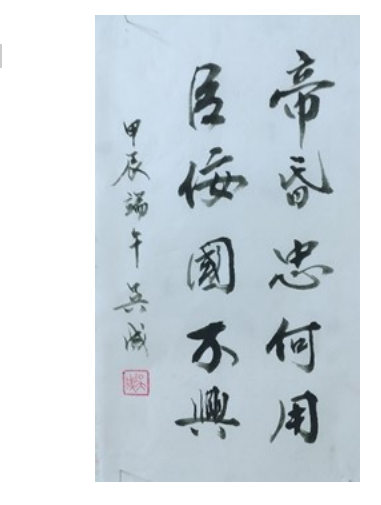 帝昏忠何用
臣佞國不興
甲辰端午吳威